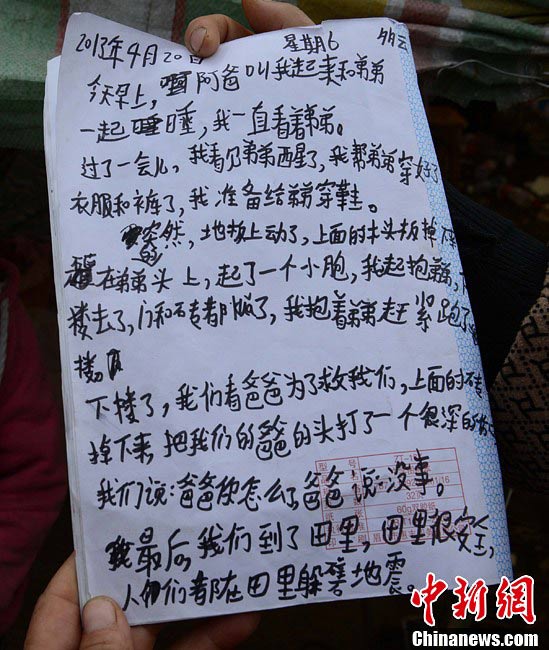 2013年4月20日 星期6
今天早上，阿爸叫我起来和弟弟
一起睡，我一直看着弟弟。
过了一会儿，我看见弟弟西星了，我帮弟弟穿好了
衣服和裤子，我准备给弟弟穿鞋。
突然，地板上动了，上面的木头板掉
在弟弟头上，起了一个小胞，我起抱弟弟，
楼去了，门和石专都
了，我抱着弟弟赶王紧跑
楼
下楼了，我们看爸爸为了救我们，上面的石专
掉下来，把我们的爸爸的头打了一个很深的
我们说：爸爸你怎么了，爸爸说：没事。
最后，我们到了田里，田里很安全，
人们们都在田里躲着地震。
型号
1/16
32
60g
中新网
Chinanews.com